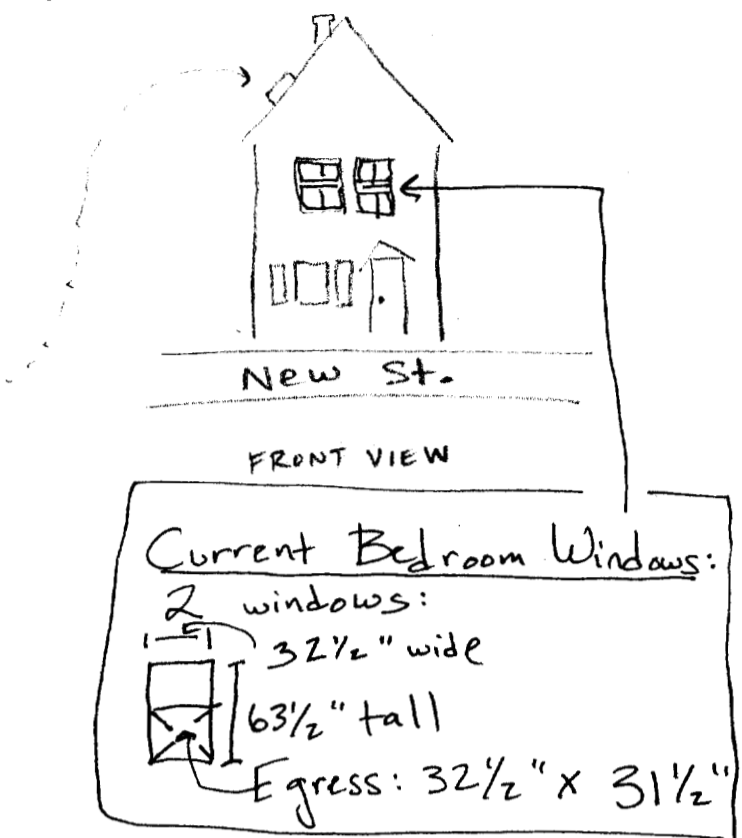 New St.
FRONT VIEW
Current Bedroom Windows:
2 windows:
32 1/2" wide
63 1/2" tall
Egress: 32 1/2" x 31 1/2"